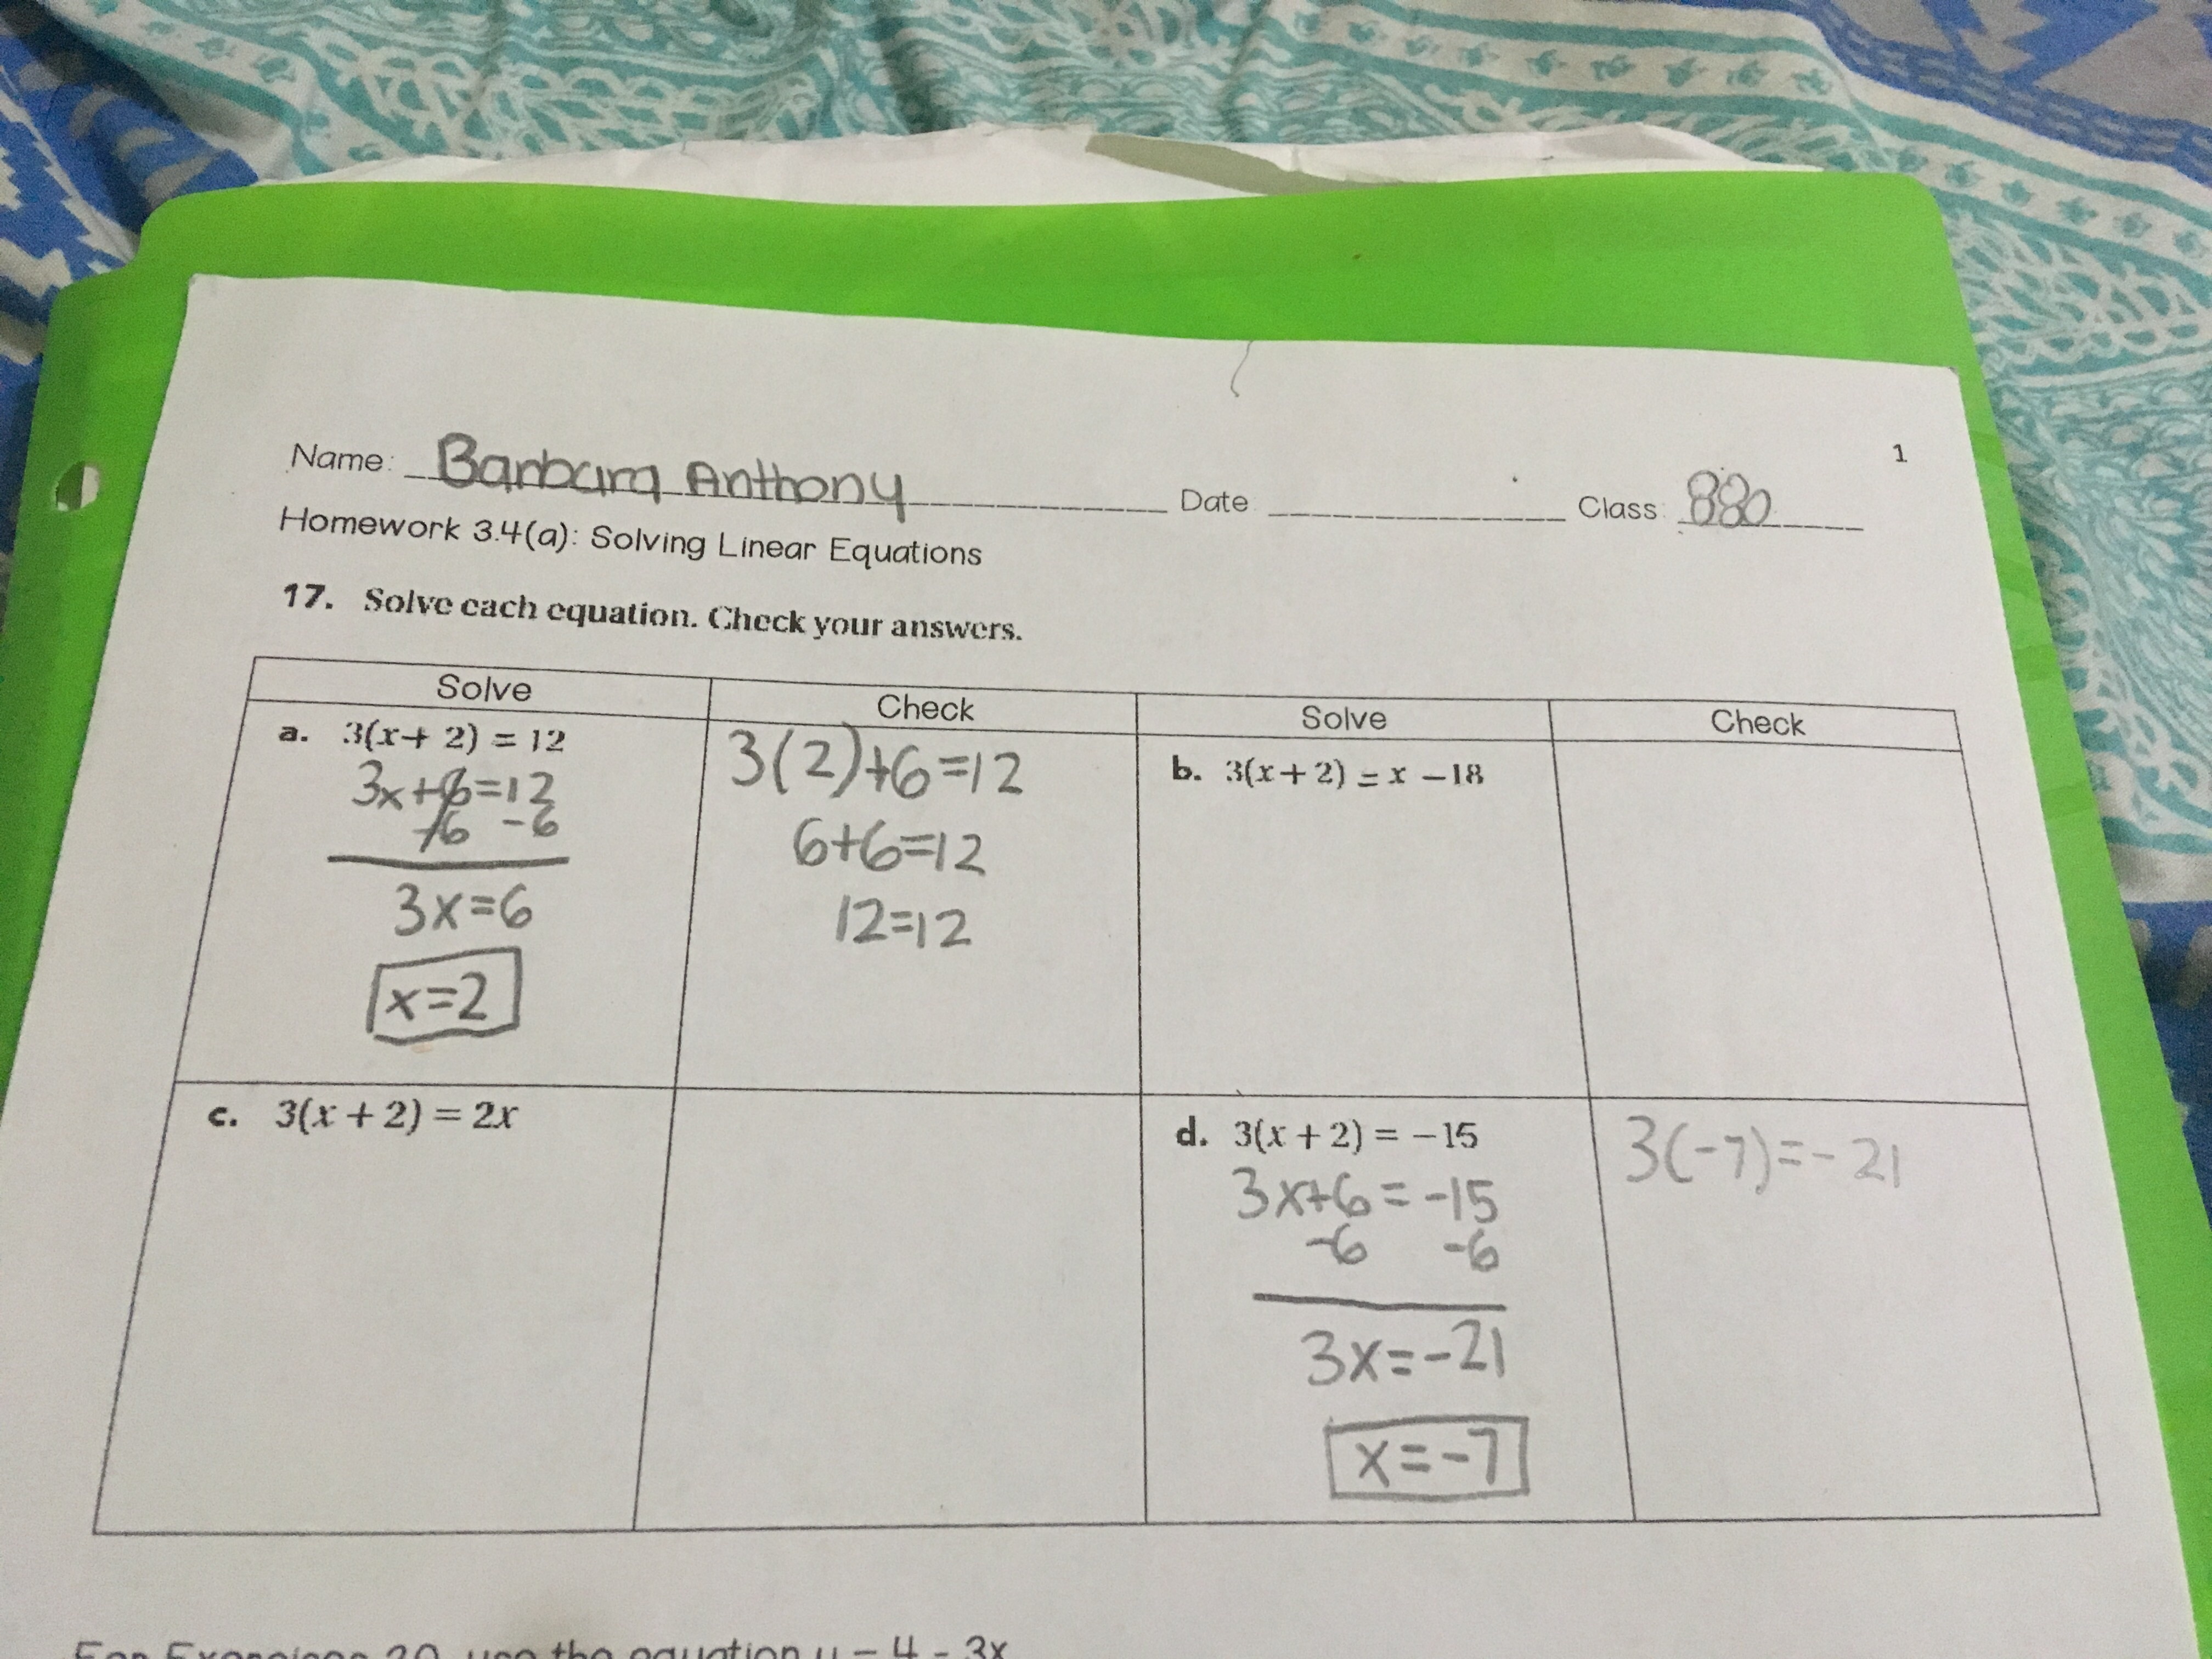 1
Name: Barbara Anthony Date Class: 880
Homework 3.4(a): Solving Linear Equations
17. Solve each equation. Check your answers.
Solve Check Solve Check
a. 3(x+ 2) = 12
3x+6=12
-6 -6
3x=6
x=2
3(2)+6=12
6+6=12
12=12
b. 3(x+2) = x -18
c. 3(x + 2) = 2x
d. 3(x + 2) = -15
3x+6=-15
-6 -6
3x=-21
x=-7
3(-7)=-21
For Exercises 20, use the equation y = 4 - 3x